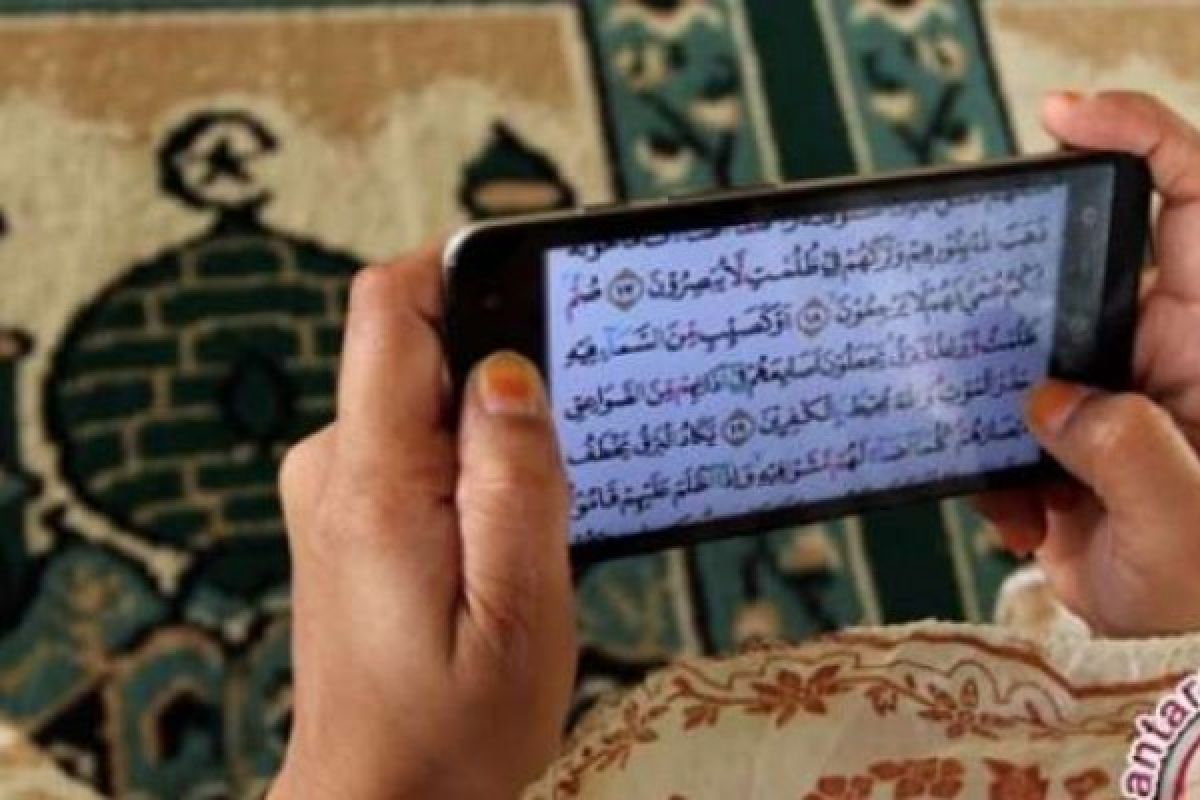 حَوْلَهٗ
ذَهَبَ اللّٰهُ بِنُوْرِهِمْ وَتَرَكَهُمْ فِيْ ظُلُمٰتٍ لَّا يُبْصِرُوْنَ ١٧ صُمٌّۢ
بُكْمٌ عُمْيٌ فَهُمْ لَا يَرْجِعُوْنَ ١٨ اَوْ كَصَيِّبٍ مِّنَ السَّمَاۤءِ فِيْهِ
ظُلُمٰتٌ وَّرَعْدٌ وَّبَرْقٌ يَجْعَلُوْنَ اَصَابِعَهُمْ فِيْٓ اٰذَانِهِمْ مِّنَ الصَّوَاعِقِ
حَذَرَ الْمَوْتِ وَاللّٰهُ مُحِيْطٌۢ بِالْكٰفِرِيْنَ ١٩ يَكَادُ الْبَرْقُ يَخْطَفُ
اَبْصَارَهُمْ كُلَّمَآ اَضَاۤءَ لَهُمْ مَّشَوْا فِيْهِ وَاِذَآ اَظْلَمَ عَلَيْهِمْ قَامُوْا
antar